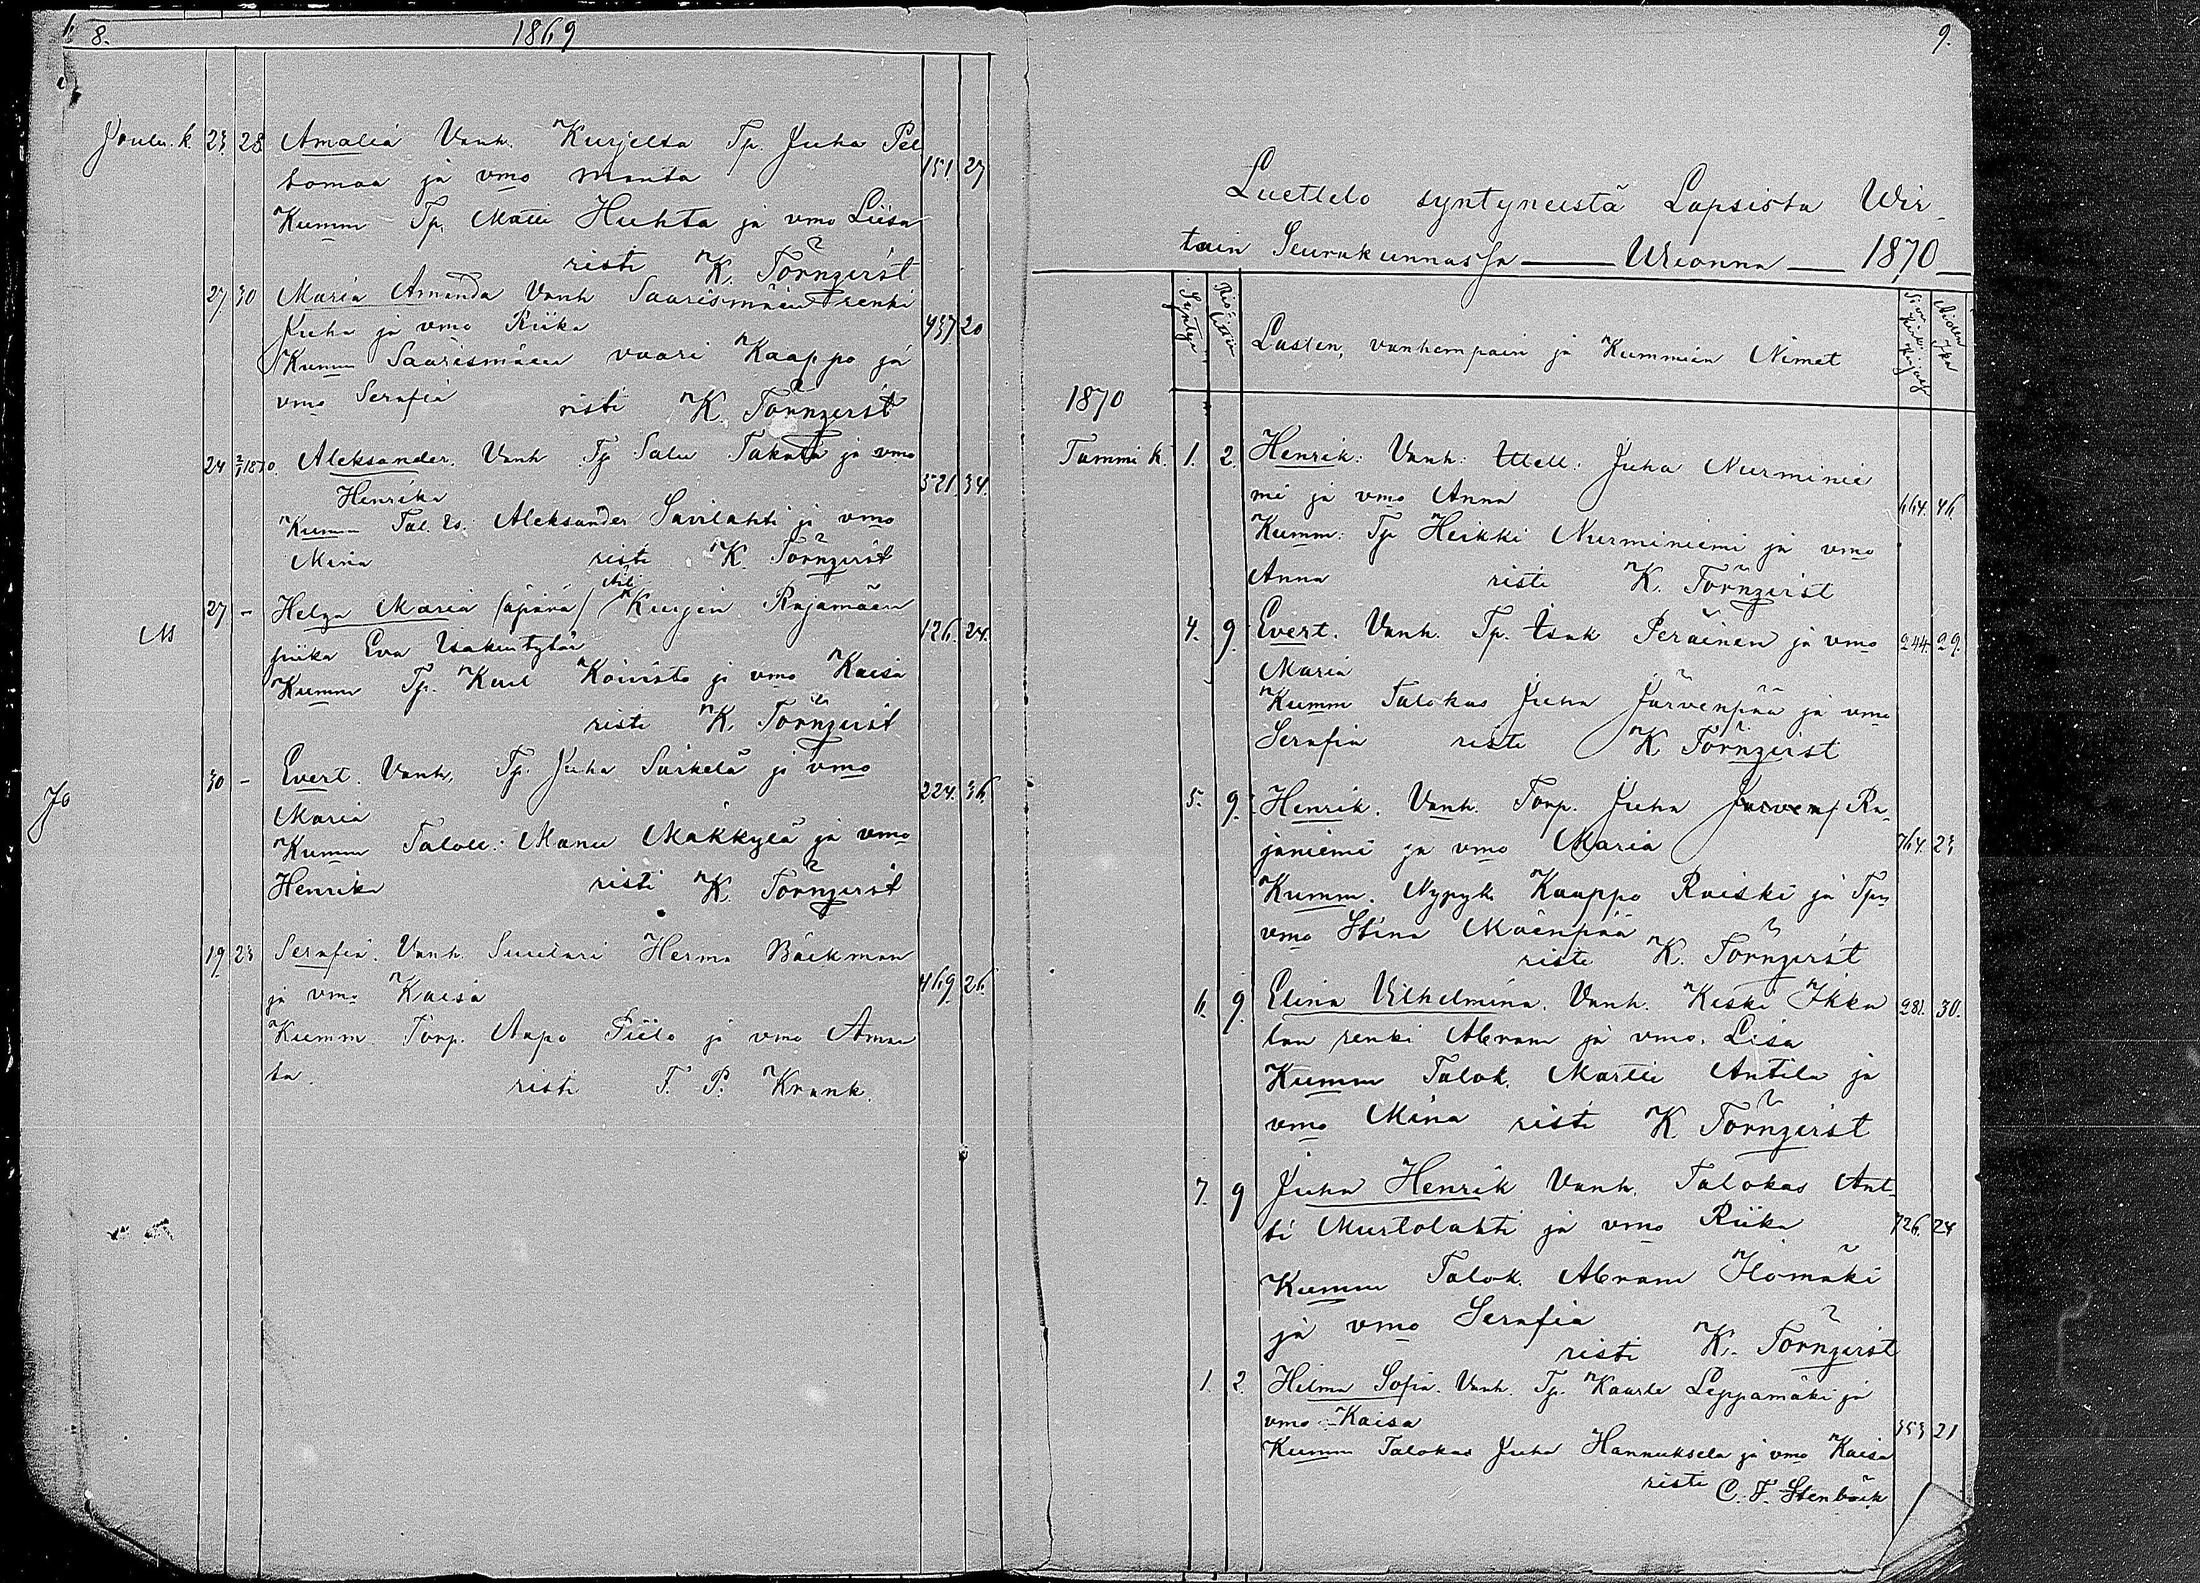 8. 1869
Joulu k. 23 28 Amalia Vanh. Kurjelta Tp. Juha Pel
tomaa ja vmo Manta 151. 27
Kumm Tp. Matti Huhta ja vmo Liisa
risti K. Törnqvist
27 30 Maria Amanda Vanh Saarismäen renki
Juha ja vmo Riika 437 20
Kumm Saarismäen vaari Kaappo ja
vmo Serafia risti K. Törnqvist
24 2/1 1870. Aleksander. Vanh Tp Salu Takala ja vmo
Henrika 521. 34.
Kumm Tal. Aleksander Savilahti ja vmo
Mina risti K. Törnqvist
27 - Helga Maria /äpärä/ Äiti Kurjen Rajamäen
M piika Eva Isakintytär 126. 24.
Kumm Tp. Kael Koivisto ja vmo Kaisa
risti K. Törnqvist
30 - Evert. Vanh. Tp. Juha Särkelä ja vmo
Jo 224. 36.
Maria
Kumm Taloll: Manu Mäkkylä ja vmo
Henrika risti K. Törnqvist
19 23 Serafia. Vanh. Suutari Herma Bäckman
ja vmo Kaisa 469 26.
Kumm. Torp. Aapo Piilo ja vmo Aman
ta. risti F. P. Krank.
9.
Luettelo syntyneistä Lapsista Wir-
tain Seurakunnassa — Wuonna — 1870 —
Syntyn Ristittiin Lasten, vanhempain ja Kummien Nimet Äiden Ikä
1870
Tammi k. 1. 2. Henrik: Vanh: Juha Nurminie
mi ja vmo Anna 664. 46
Kumm: Tp Heikki Nurminiemi ja vmo
Anna risti K. Törnqvist
4. 9. Evert. Vanh. Tp. Isak Peräinen ja vmo 244. 29.
Maria
Kumm Talokas Juha Järvenpää ja vmo
Serafia risti K Törnqvist
5. 9. Henrik. Vanh. Torp. Juha Ra
janiemi ja vmo Maria 764. 23
Kumm. Kaappo Raiski ja Tpn
vmo Stina Mäenpää
risti K. Törnqvist
6. 9. Elina Vilhelmina. Vanh. Keski Ikka 281. 30.
lan renki Abram ja vmo. Lisa
Kumm Talok. Martti Antila ja
vmo Mina risti K Törnqvist
7. 9 Juha Henrik Vanh. Talokas Ant-
ti Murtolahti ja vmo Riika 726. 24
Kumm Talok. Abram Ilomäki
ja vmo Serafia
risti K. Törnqvist
1. 2. Hilma Sofia. Vanh. Tp. Kaarle Leppämäki ja
vmo Kaisa 353 21
Kumm Talokas Juha Hannuksela ja vmo Kaisa
risti C. F. Stenbäck